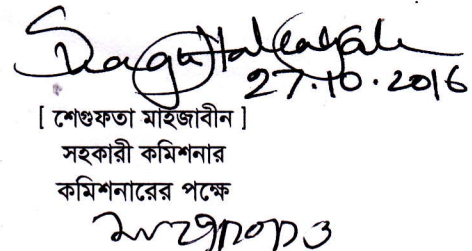 27.10.2016
[ শেগুফতা মাহজাবীন ]
সহকারী কমিশনার
কমিশনারের পক্ষে